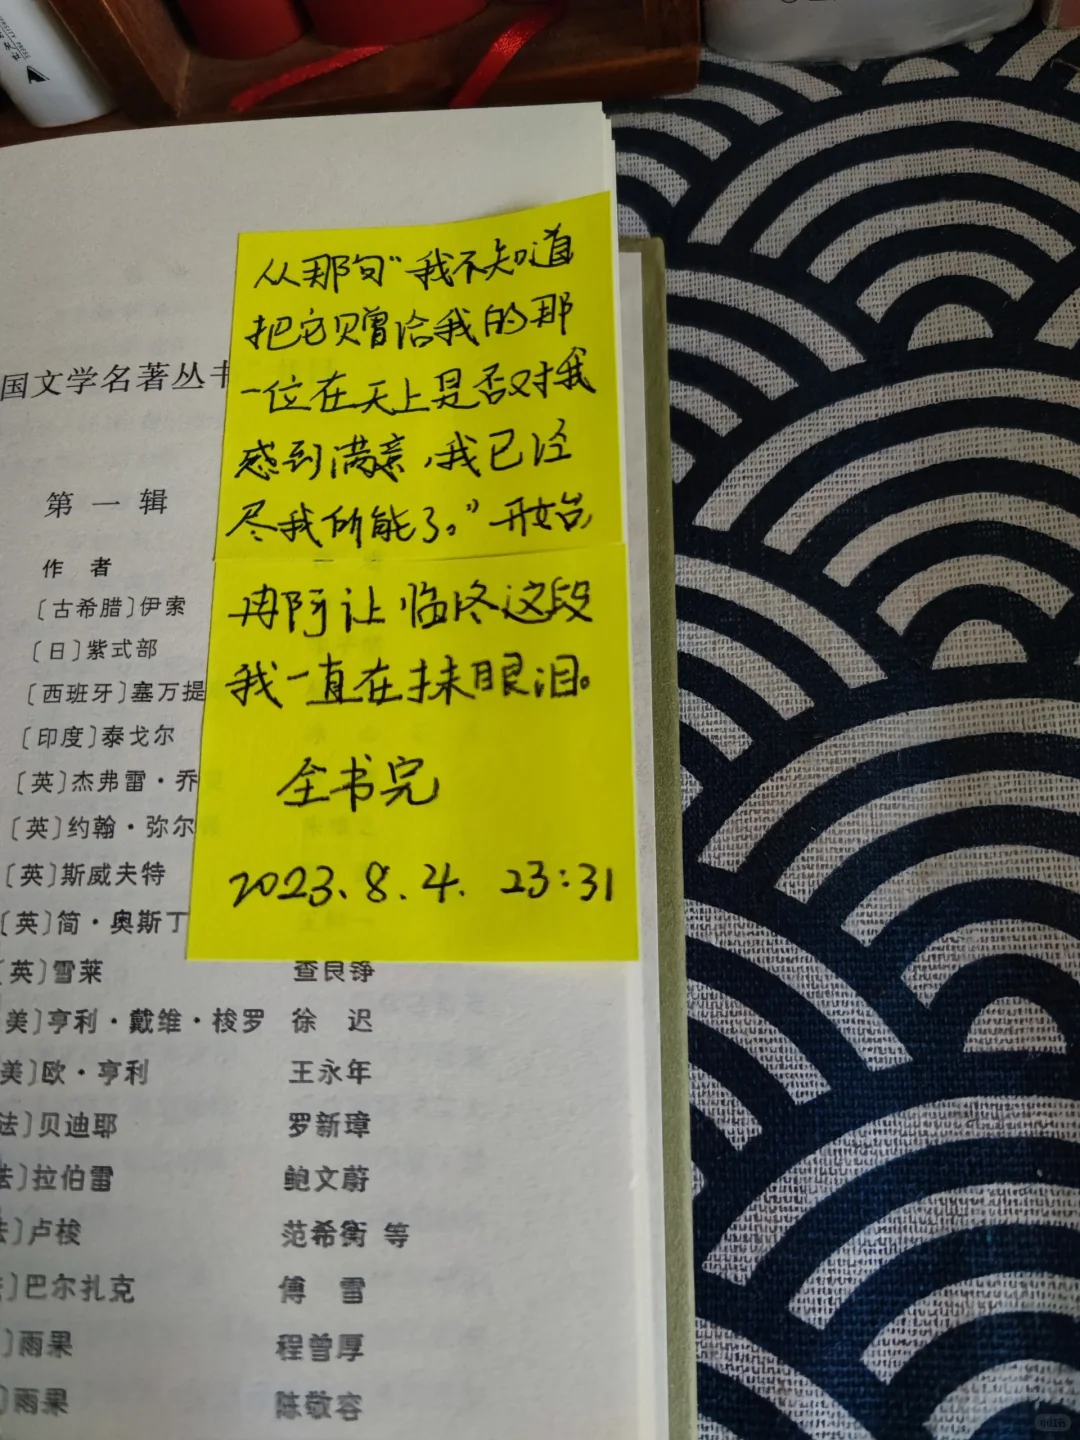 从那句“我不知道
把它赠给我的那
一位在天上是否对我
感到满意，我已经
尽我所能了。”开始
冉阿让临终这段
我一直在抹眼泪。
全书完
2023.8.4. 23:31
国文学名著丛书
第一辑
作者
〔古希腊〕伊索
〔日〕紫式部
〔西班牙〕塞万提
〔印度〕泰戈尔
〔英〕杰弗雷·乔
〔英〕约翰·弥尔
〔英〕斯威夫特
〔英〕简·奥斯丁
英〕雪莱 查良铮
美〕亨利·戴维·梭罗 徐迟
美〕欧·亨利 王永年
法〕贝迪耶 罗新璋
法〕拉伯雷 鲍文蔚
法〕卢梭 范希衡 等
〕巴尔扎克 傅雷
〕雨果 程曾厚
〕雨果 陈敬容